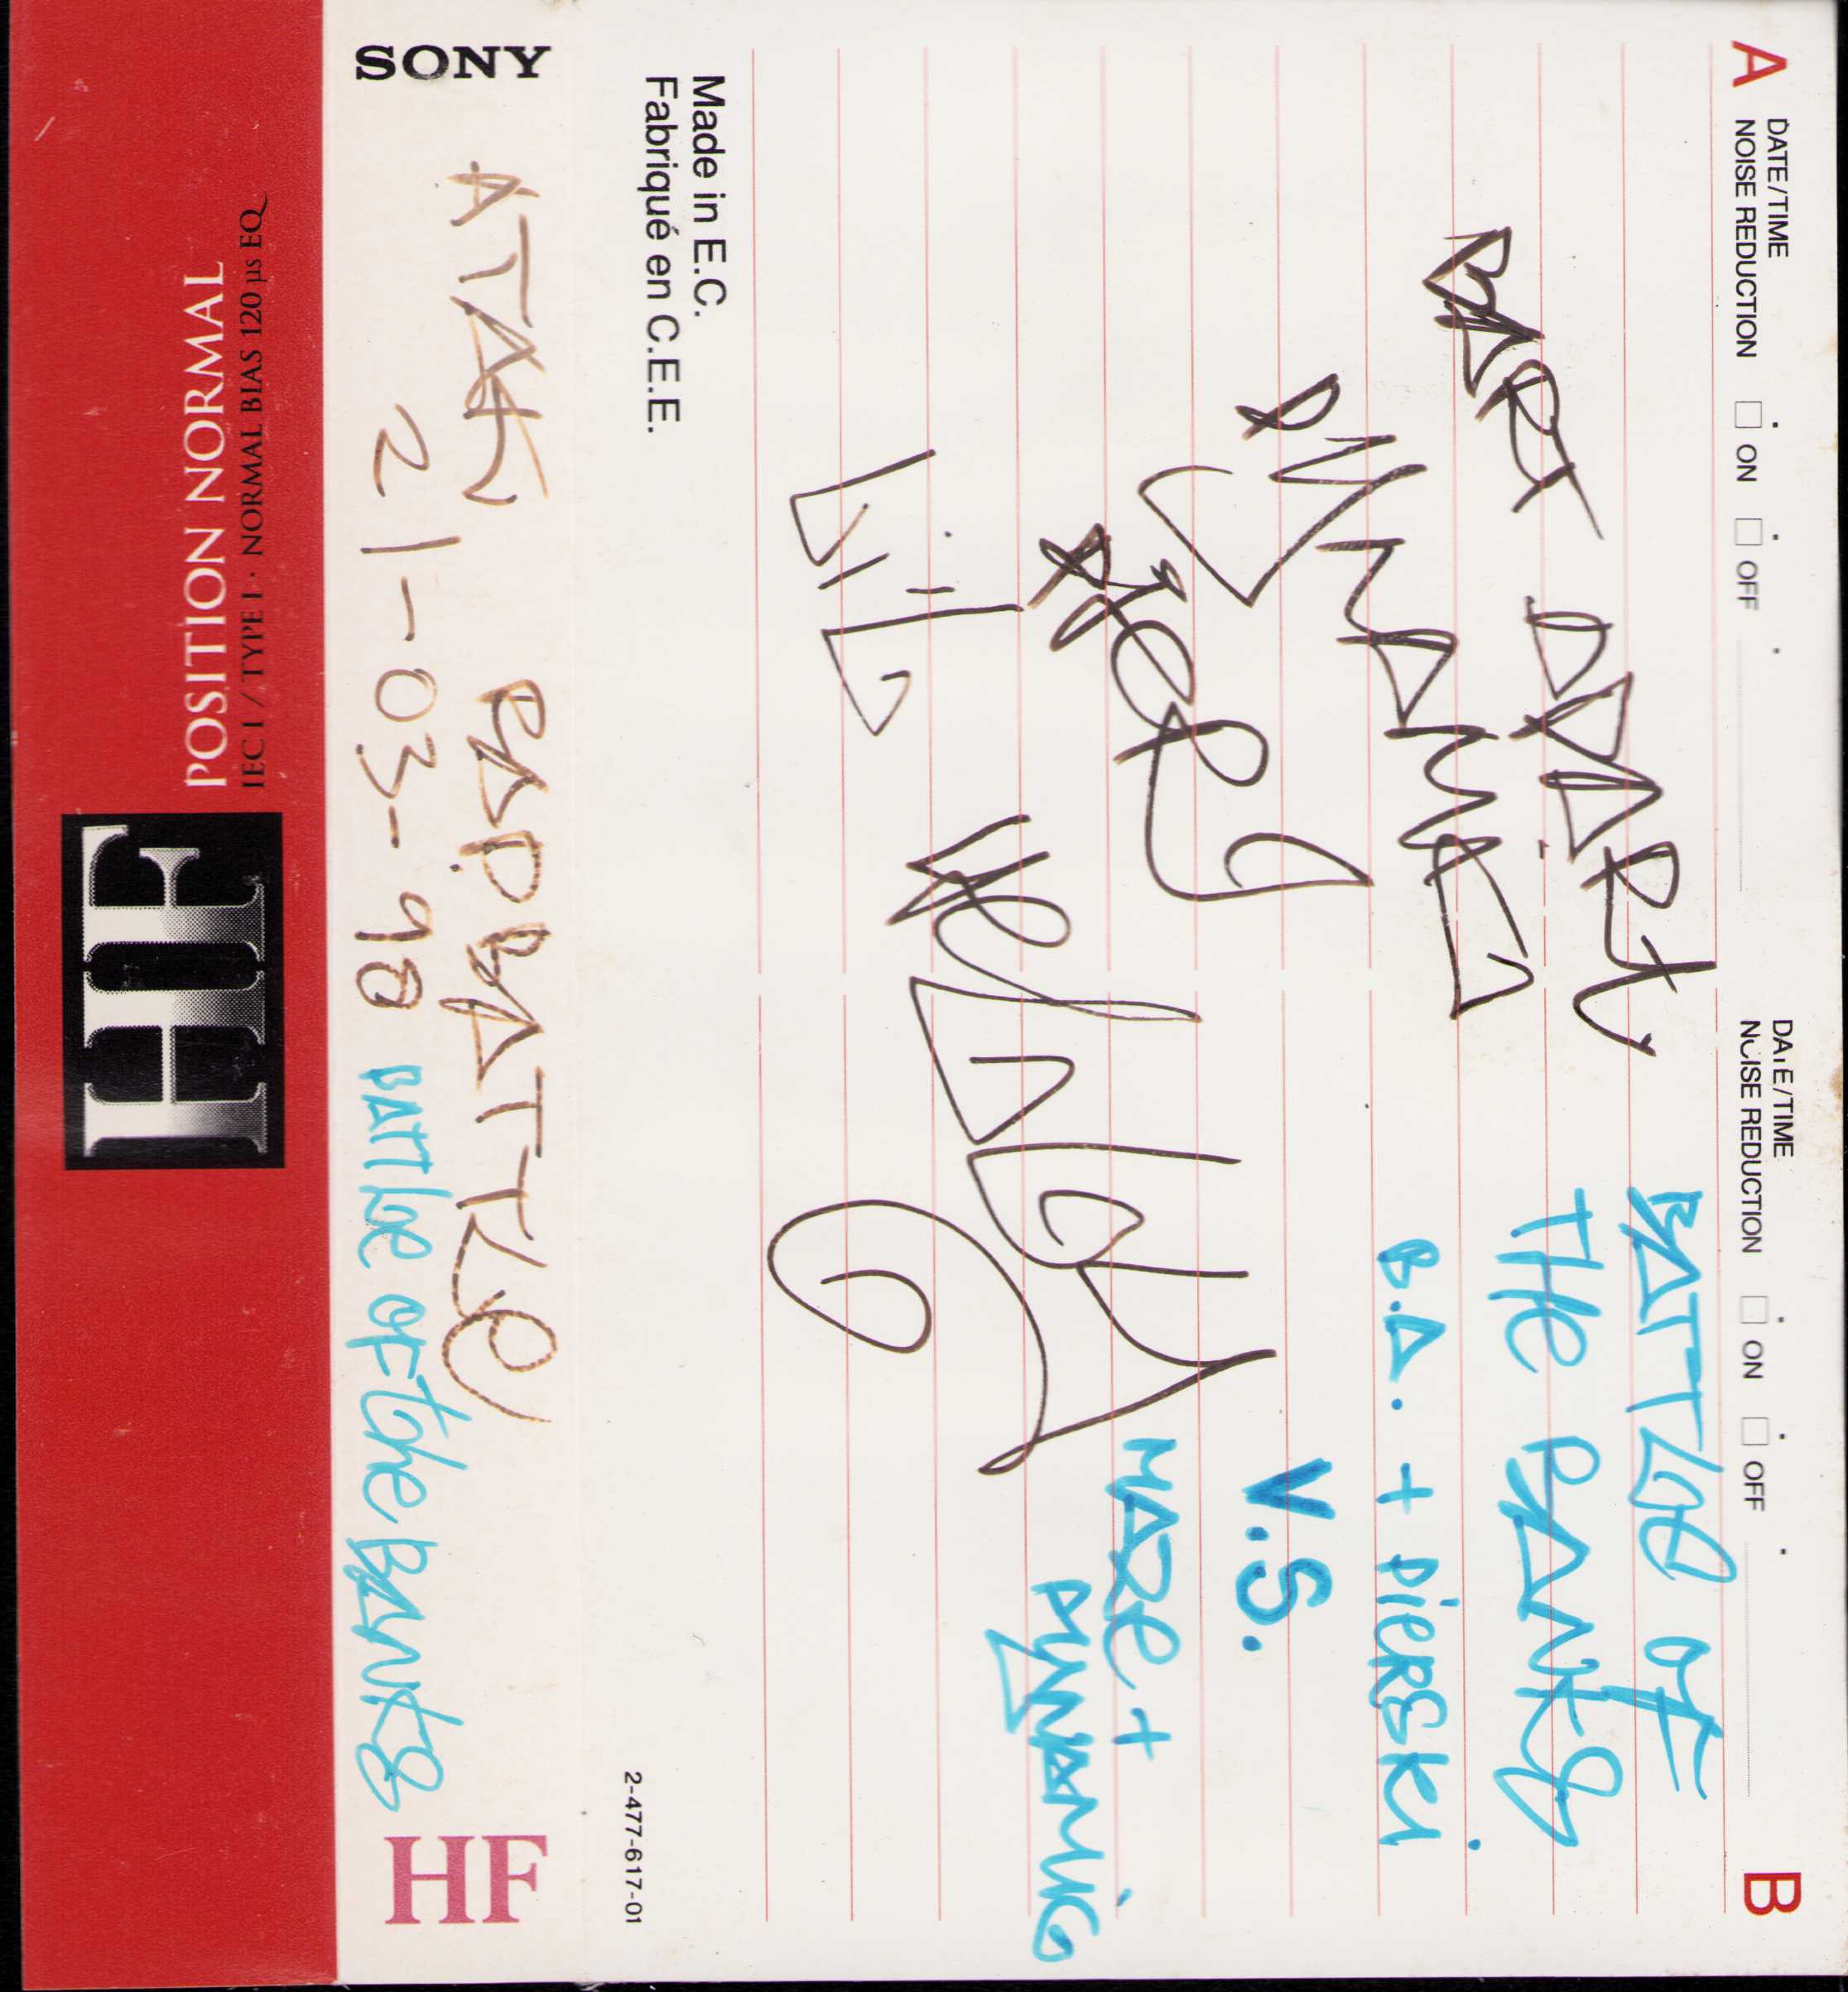 A DATE/TIME DATE/TIME B
NOISE REDUCTION ON OFF NOISE REDUCTION ON OFF
BART
DYNAMIC
BATTLE OF
THE BANKS
B.D. + PiERSKi
V.S.
+
DYNAMiC
Made in E.C.
Fabriqué en C.E.E.
2-477-617-01
SONY ATAK RAPBATTLE HF
21-03-98 BATTLE OF the BANKS
IEC I / TYPE I · NORMAL BIAS 120 µs EQ
POSITION NORMAL
HF